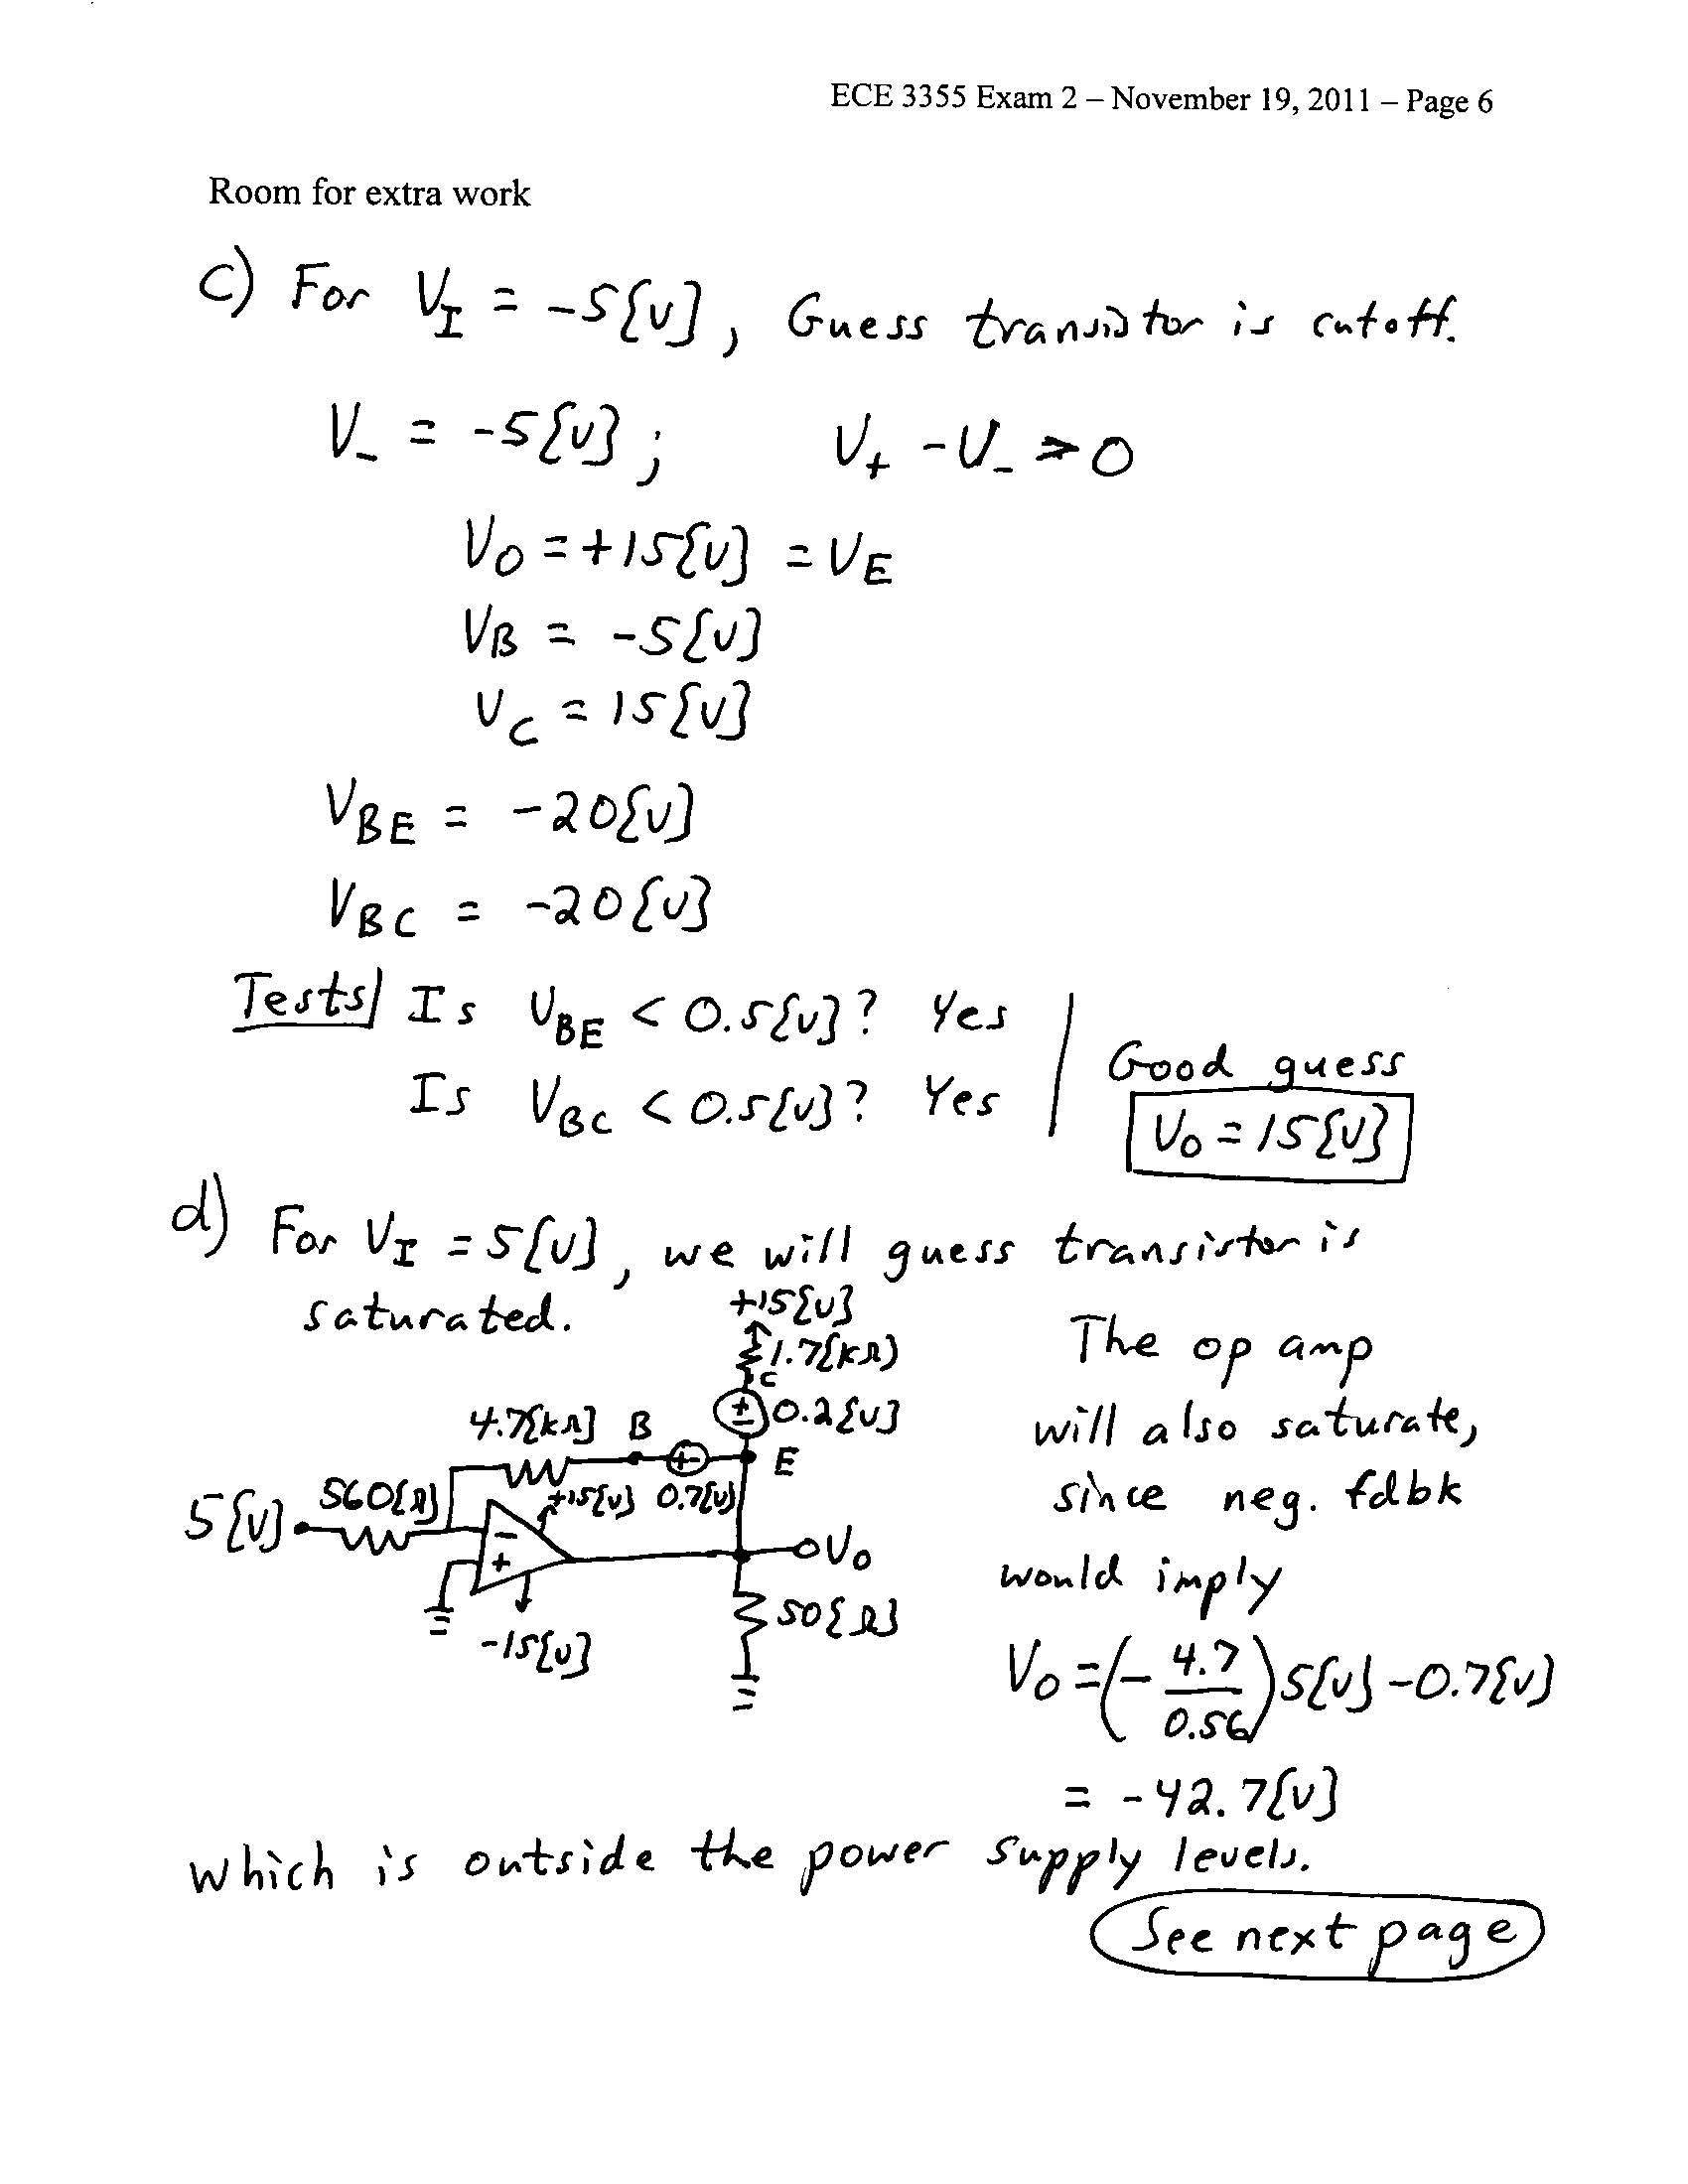 ECE 3355 Exam 2 – November 19, 2011 – Page 6
Room for extra work
c) For V_I = -5{V}, Guess transistor is cutoff.
V_- = -5{V}; V_+ - V_- > 0
V_O = +15{V} = V_E
V_B = -5{V}
V_C = 15{V}
V_BE = -20{V}
V_BC = -20{V}
Tests| Is V_BE < 0.5{V}? Yes
Is V_BC < 0.5{V}? Yes
Good guess
V_O = 15{V}
d) For V_I = 5{V}, we will guess transistor is
saturated.
+15{V}
1.7{kΩ}
C
+ - 0.2{V}
4.7{kΩ} B
+ - E
560{Ω} +15{V} 0.7{V}
5{V}
-
+
V_O
50{Ω}
-15{V}
The op amp
will also saturate,
since neg. fdbk
would imply
V_O = (- 4.7/0.56) 5{V} - 0.7{V}
= -42.7{V}
which is outside the power supply levels.
See next page